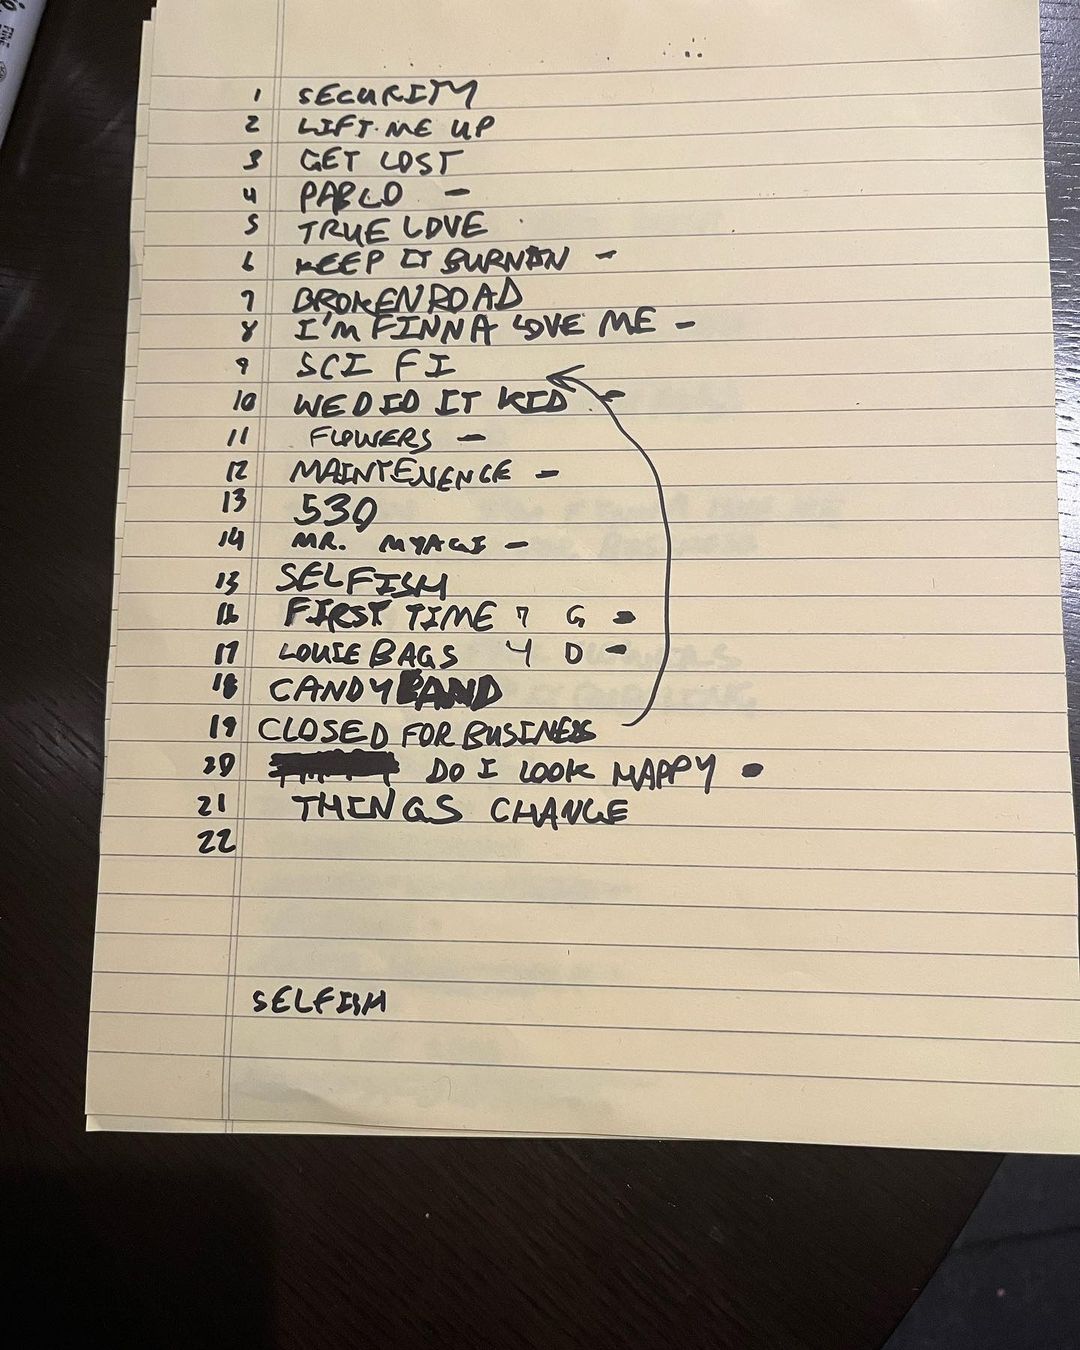 1 SECURITY
2 LIFT ME UP
3 GET LOST
4 PABLO -
5 TRUE LOVE
6 KEEP IT BURNIN -
7 BROKEN ROAD
8 I'M FINNA LOVE ME -
9 SCI FI
10 WE DID IT KID -
11 FLOWERS -
12 MAINTENENCE -
13 530
14 MR. MYAGI -
15 SELFISH
16 FIRST TIME 7 G -
17 LOUIE BAGS 4 D -
18 CANDYLAND
19 CLOSED FOR BUSINESS
20 DO I LOOK HAPPY •
21 THINGS CHANGE
22
SELFISH